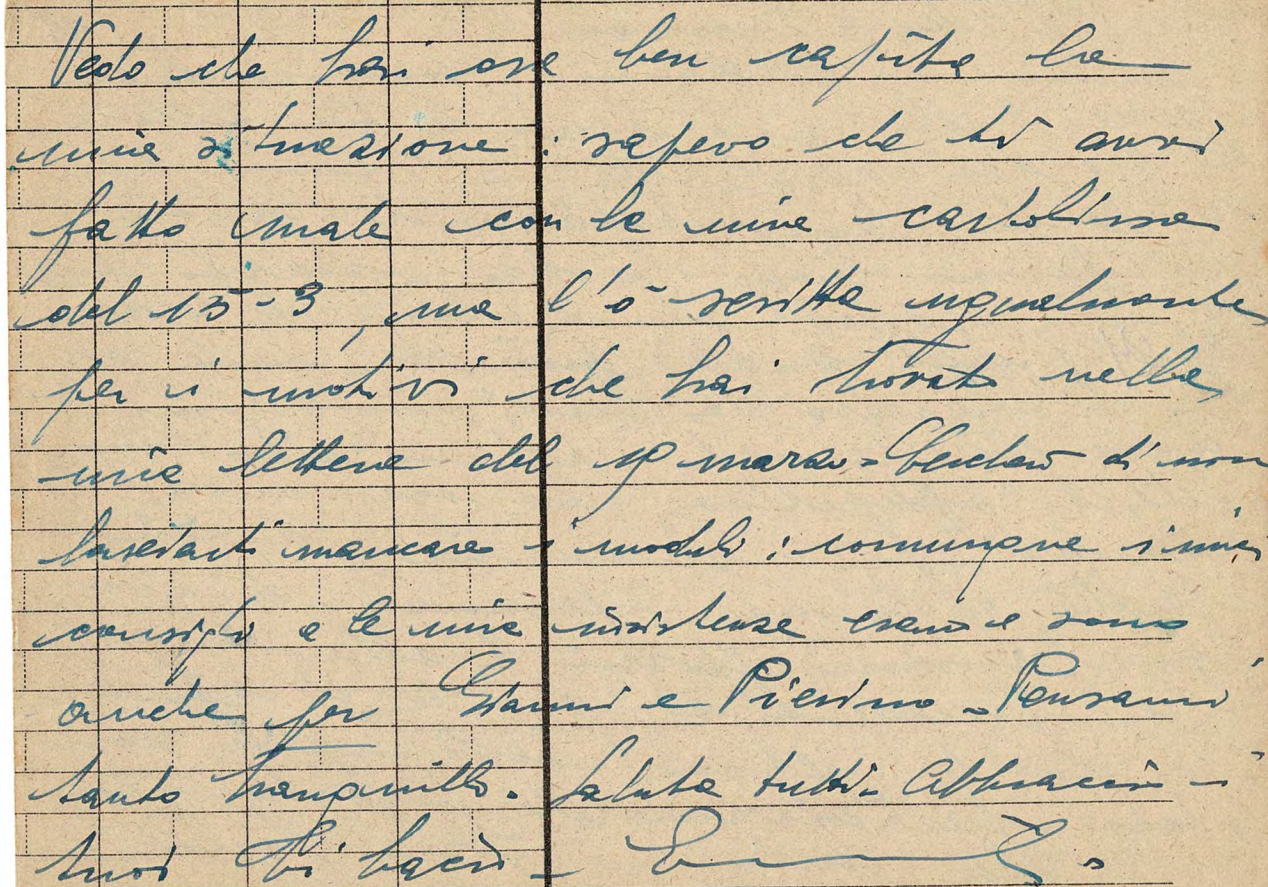 Vedo che hai ora ben capito la
mia situazione : sapevo che ti avrei
fatto male con la mia cartolina
del 15-3, ma l'ò scritta ugualmente
per i motivi che hai trovato nella
mia lettera del 19 marzo - Cercherò di non
lasciarti mancare i moduli : comunque i miei
consigli e le mie insistenze erano e sono
anche per Gianni e Pierino - Pensami
tanto tranquillo. Saluta tutti - Abbraccia i
tuoi Ti bacio -